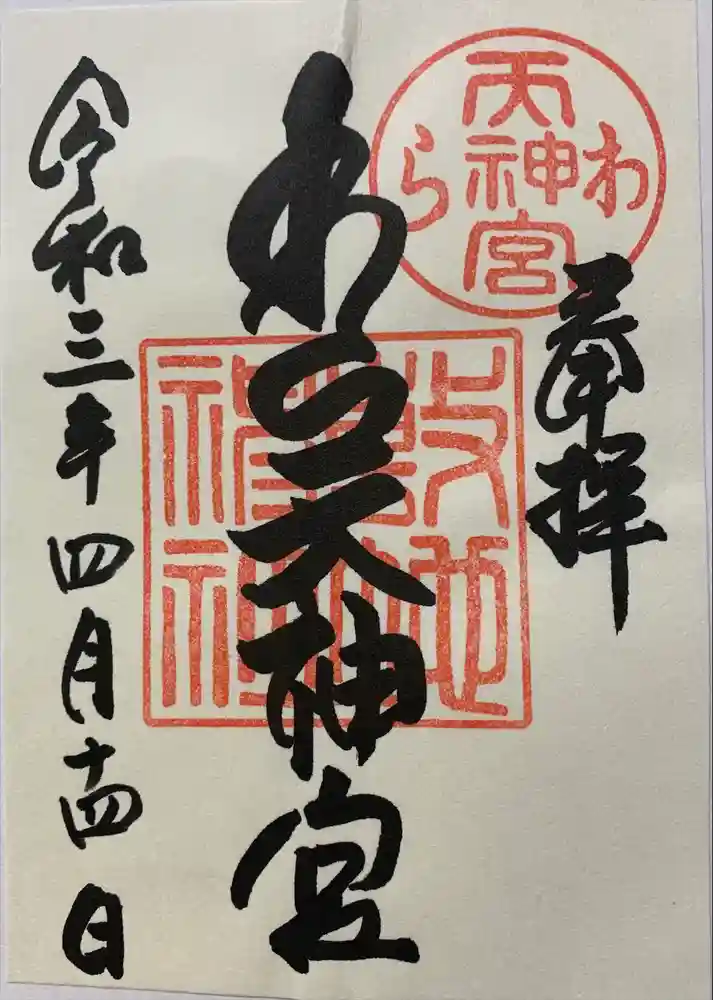 わら
天神宮
奉拝
わら天神宮
敷地
令和三年四月十四日